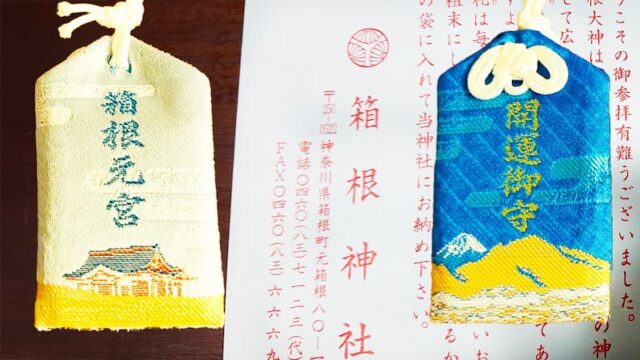 箱根元宮
開運御守
うこその御参拝有難うございました。
根大神は
の神
して広
すよ
であ
札は毎
いお
粗末にし
るか
の袋に入れて当神社にお納め下さい。
箱根神社
〒250-0522 神奈川県箱根町元箱根八〇-一
電話〇四六〇(八三)七一二三(代)
FAX〇四六〇(八三)六六六九